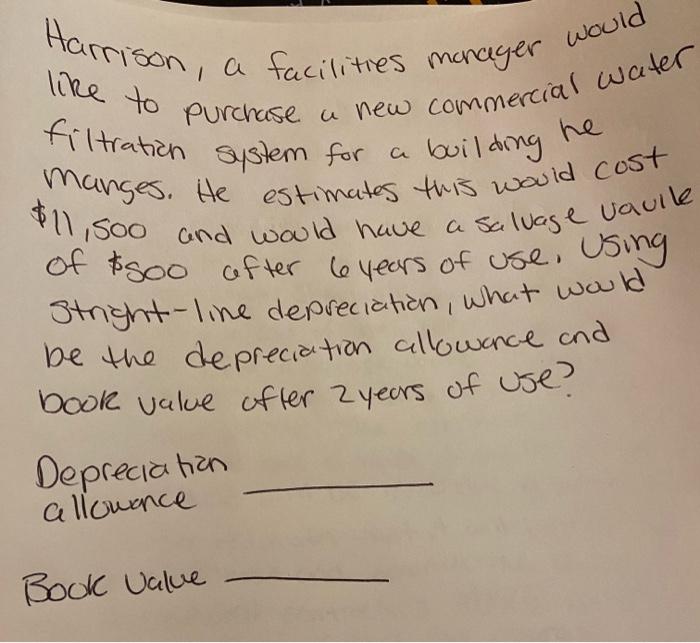 Harrison, a facilities manager would
like to purchase a new commercial water
filtration system for a building he
manges. He estimates this would cost
$11,500 and would have a salvage vaule
of $500 after 6 years of use. Using
Stright-line depreciation, what would
be the depreciation allowance and
book value after 2 years of use?
Depreciation
allowance
Book value